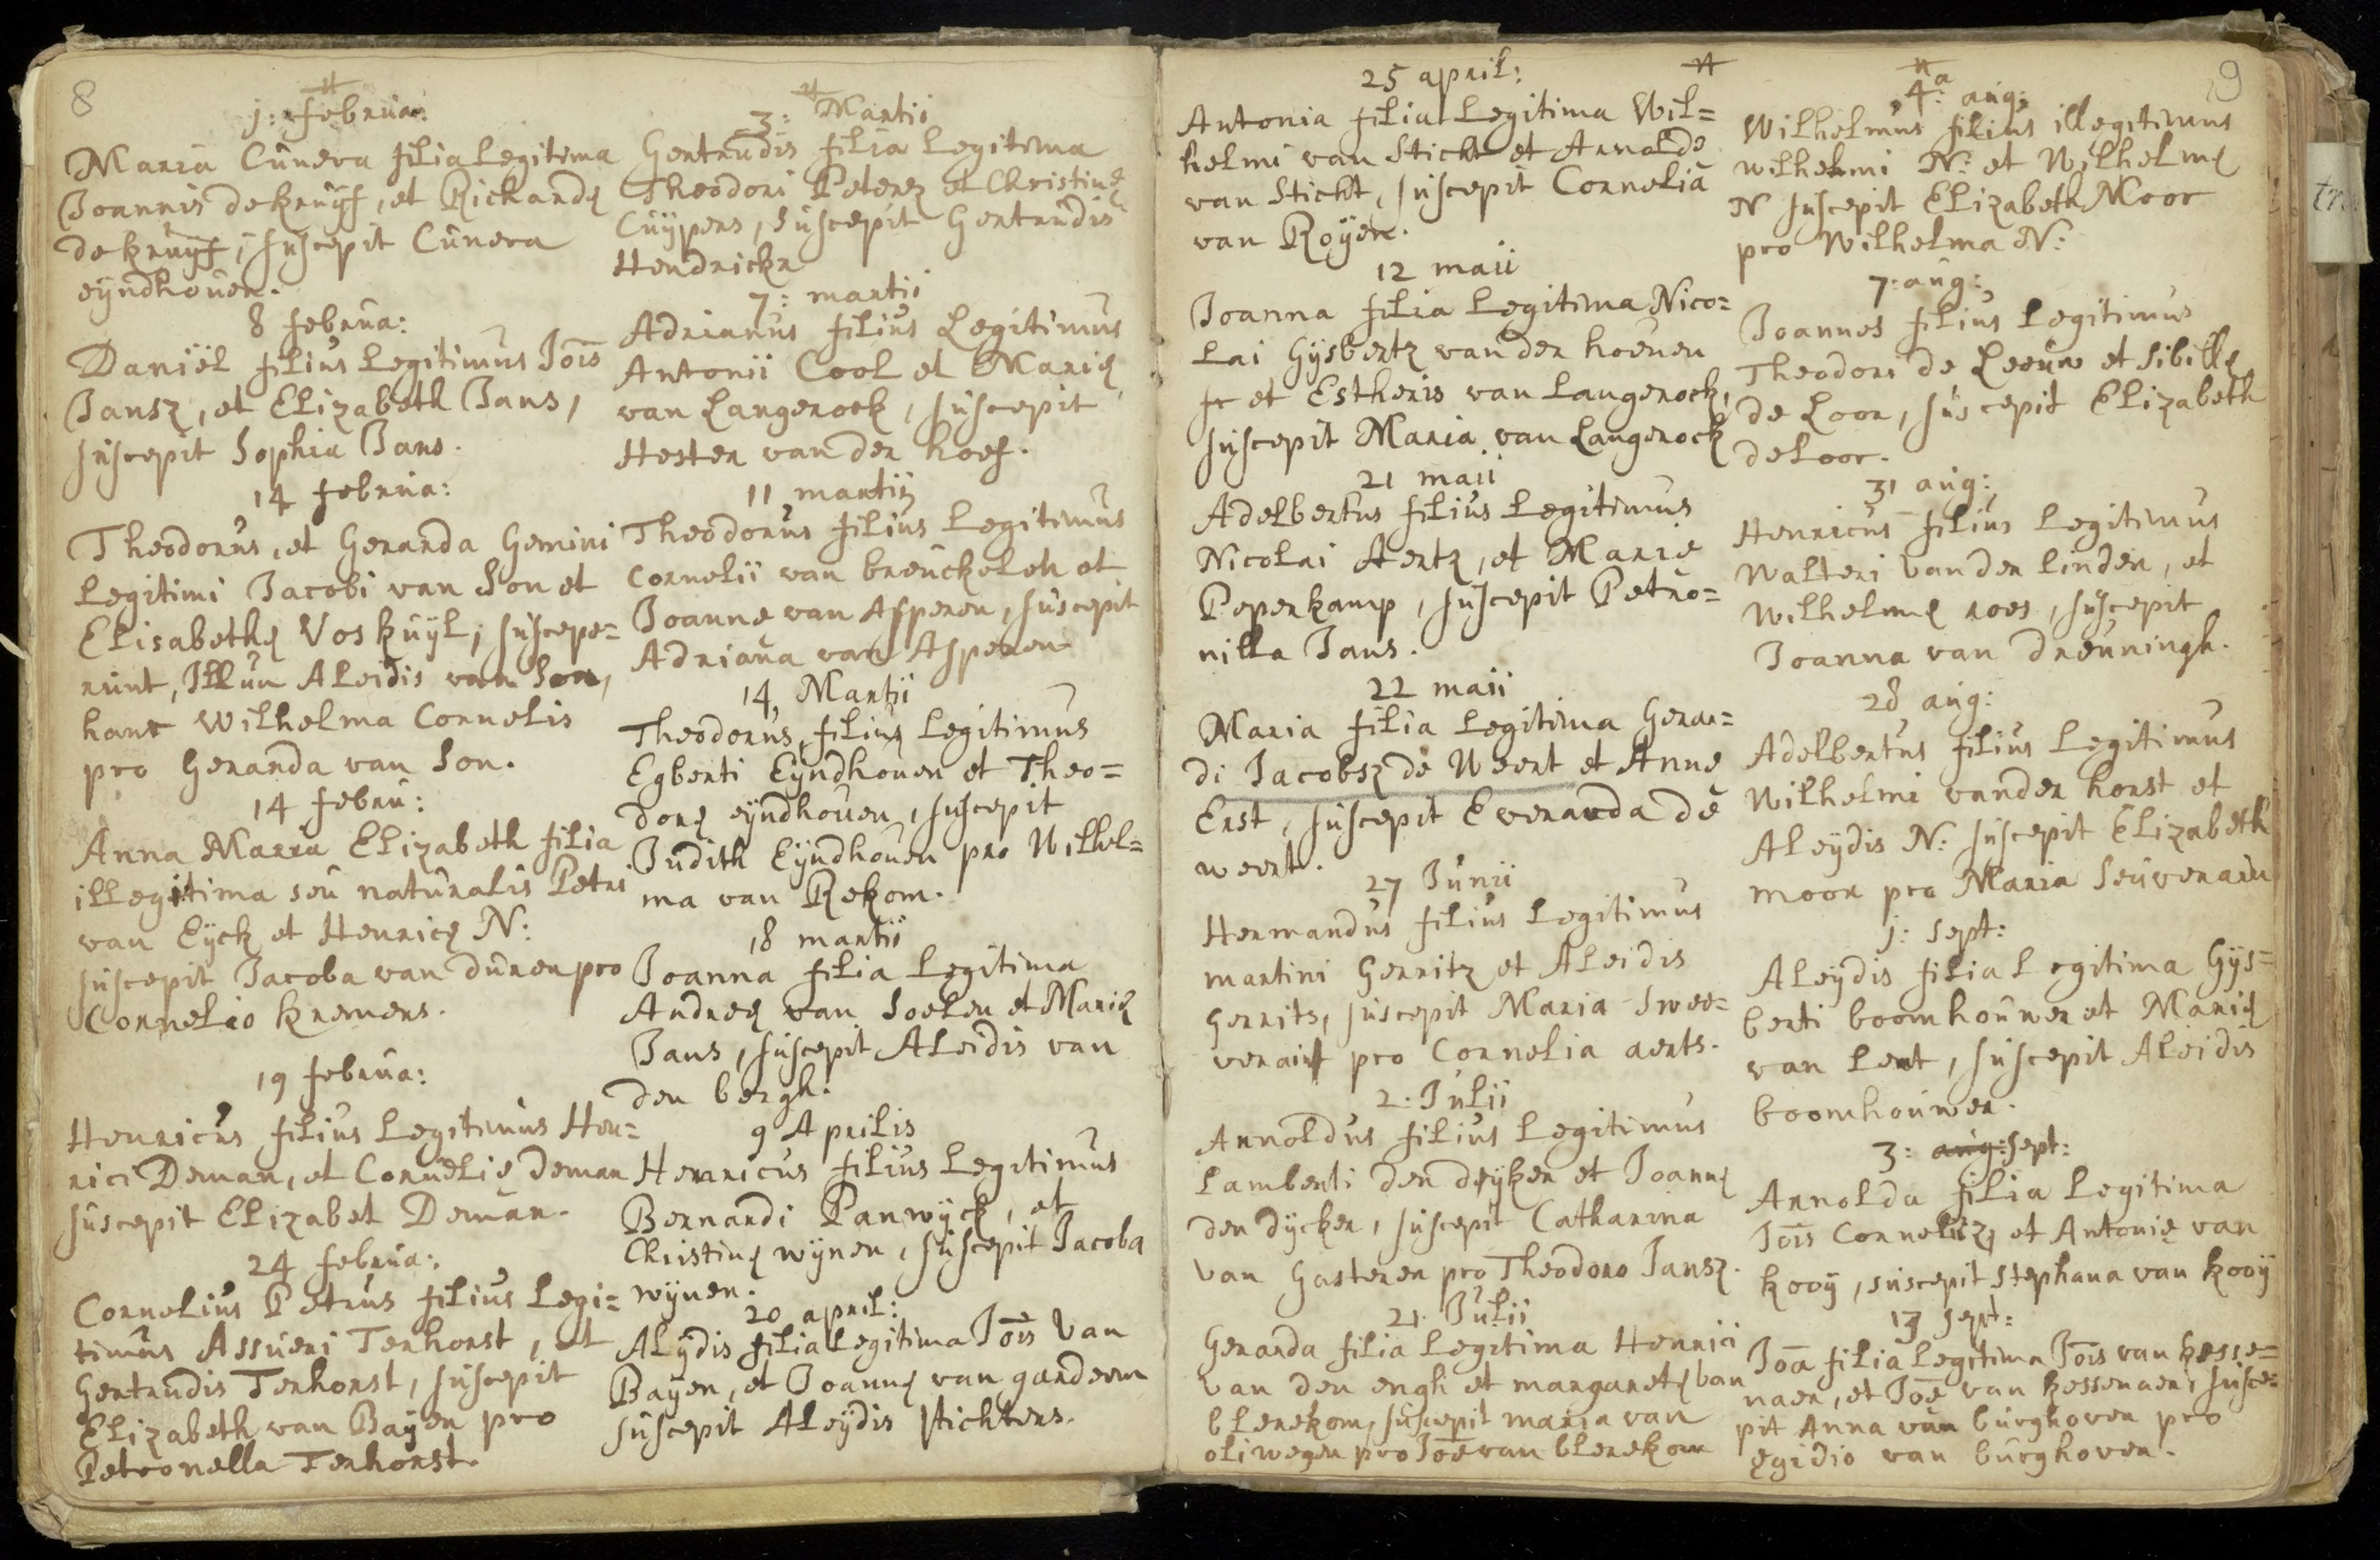 8
1: februa:
Maria Cunera filia Legitima
Joannis de kruyf, et Richardę
de kruyf, suscepit Cunera
eyndhouen.
8 februa:
Daniël filius Legitimus Jois
Jansz, et Elizabeth Jans,
suscepit Sophia Jans.
14 februa:
Theodorus, et Gerarda Gemini
Legitimi Jacobi van Son et
Elisabethę Voskuyl, suscepe=
runt, Illum Aleidis van Son,
hanc Wilhelma Cornelis
pro Gerarda van Son.
14 febru:
Anna Maria Elizabeth filia
illegitima seu naturalis Petri
van Eyck et Henricę N:
suscepit Jacoba van duren pro
Cornelio kremers.
19 februa:
Henricus filius Legitimus Hen=
rici Deman, et Cornelię deman
suscepit Elizabet Deman.
24 februa:
Cornelius Petrus filius Legi=
timus Assueri Terhorst, et
Gertrudis Terhorst, suscepit
Elizabeth van Bayen pro
Petronella Terhorst.
3: Martii
Gertrudis filia Legitima
Theodori Peterz et Christinę
Cuypers, suscepit Gertrudis
Hendrickx
7: martii
Adrianus filius Legitimus
Antonii Cool et Marię
van Langerock, suscepit
Hester van der hoef.
11 martii
Theodorus filius Legitimus
Cornelii van breuckeleh et
Joannę van Asperen, suscepit
Adriana van Asperen
14, Martii
Theodorus, filius Legitimus
Egberti Eyndhouen et Theo=
dorę eyndhouen, suscepit
Judith Eyndhouen pro Wilhel=
ma van Rekom.
18 martii
Joanna filia Legitima
Andreę van Soelen et Marię
Jans, suscepit Aleidis van
den bergh.
9 Aprilis
Henricus filius Legitimus
Bernardi Panwyck, et
Christinę wynen, suscepit Jacoba
wynen.
20 april:
Alydis filia Legitima Jois Van
Bayen, et Joannę van garderen
suscepit Aleydis stichters.
25 april:
Antonia filia Legitima Wil=
helmi van Sticht et Arnoldę
van Sticht, suscepit Cornelia
van Royen.
12 maii
Joanna filia Legitima Nico=
Lai Gysbertz van der hoeuen
et Estheris van Langerock,
suscepit Maria van Langerock
21 maii
Adelbertus filius Legitimus
Nicolai Aertz, et Marię
Peperkamp, suscepit Petro=
nilla Jans.
22 maii
Maria filia Legitima Gerar=
di Jacobsz de Weert et Annę
Erst, suscepit Everarda de
weert.
27 Junii
Hermandus filius Legitimus
martini Gerritz et Aleidis
Gerrits, suscepit Maria Swee=
veraint pro Cornelia aerts.
2. Julii
Arnoldus filius Legitimus
Lamberti den dyker et Joannę
den dycker, suscepit Catharina
van Gasteren pro Theodoro Jansz.
21. Julii
Gerarda filia Legitima Henrici
Van den engh et margaretę van
blerekom, suscepit maria van
oliwegen pro Joe van blerekom
9
4a: aug:
Wilhelmus filius illegitimus
wilhelmi N: et Wilhelmę
N suscepit Elizabeth Moor
pro Wilhelma N:
7: aug:
Joannes filius Legitimus
Theodori de Leeuw et Sibillę
de Loor, suscepit Elizabeth
deloor.
31 aug:
Henricus filius Legitimus
Walteri Van der linden, et
Wilhelmę roes, suscepit
Joanna van dreuningh.
28 aug:
Adelbertus filius Legitimus
Wilhelmi vander horst et
Aleydis N: suscepit Elizabeth
moor pro Maria
1: Sept:
Aleydis filia Legitima Gys=
berti boomhouwer et Marię
van Lent, suscepit Aleidis
boomhouwer.
3: aug: Sept:
Arnolda filia Legitima
Jois Cornelisz, et Antonię van
kooy, suscepit Stephana van kooy
13 Sept:
Joa filia Legitima Jois van kesse=
naer, et Joę van kessenaer, susce=
pit Anna van burghoven pro
egidio van burghoven.